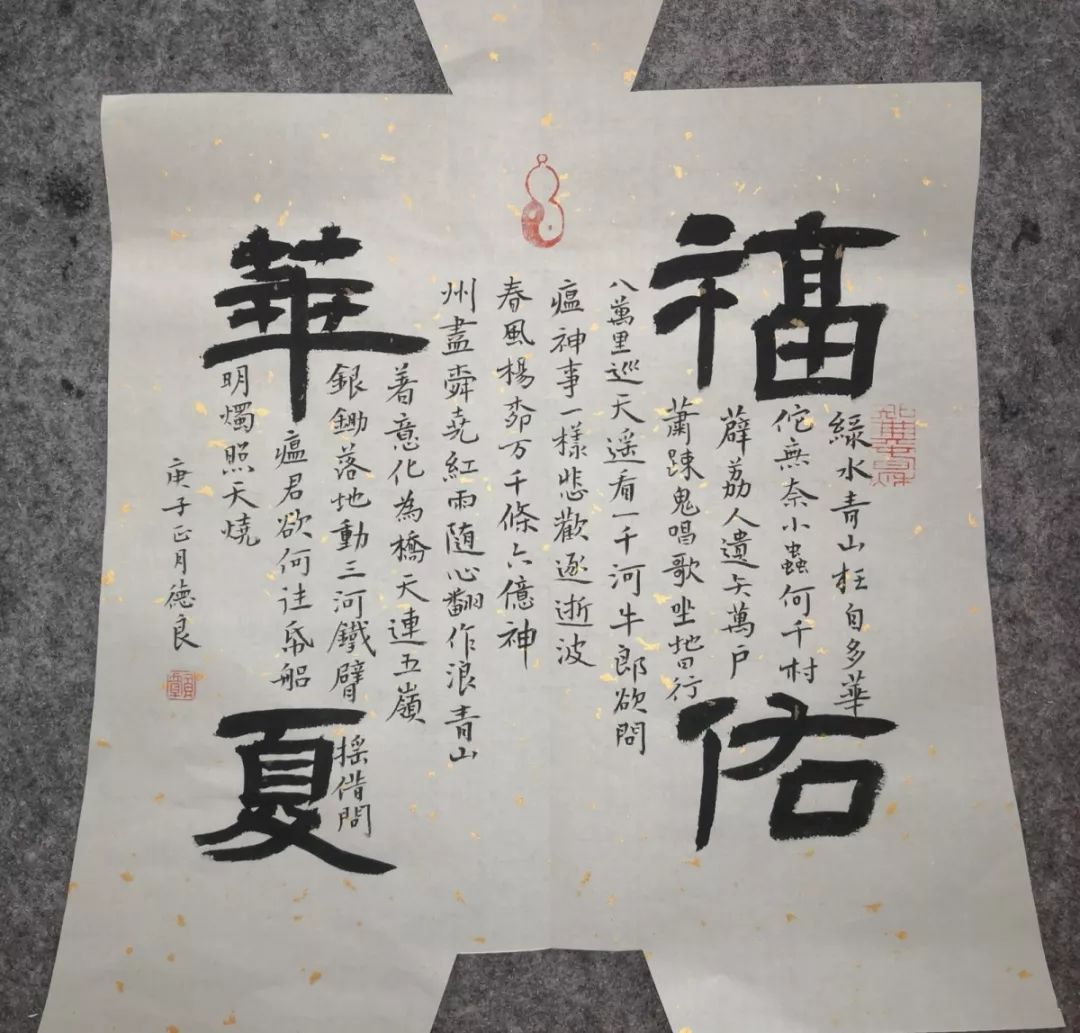 福佑
華夏
綠水青山枉自多華
佗無奈小蟲何千村
薜荔人遺矢萬户
蕭踈鬼唱歌坐地日行
八萬里巡天遥看一千河牛郎欲問
瘟神事一樣悲歡逐逝波
春風楊柳万千條六億神
州盡舜堯紅雨随心翻作浪青山
着意化為橋天連五嶺
銀鋤落地動三河鐵臂摇借問
瘟君欲何往帋船
明燭照天燒
庚子正月德良